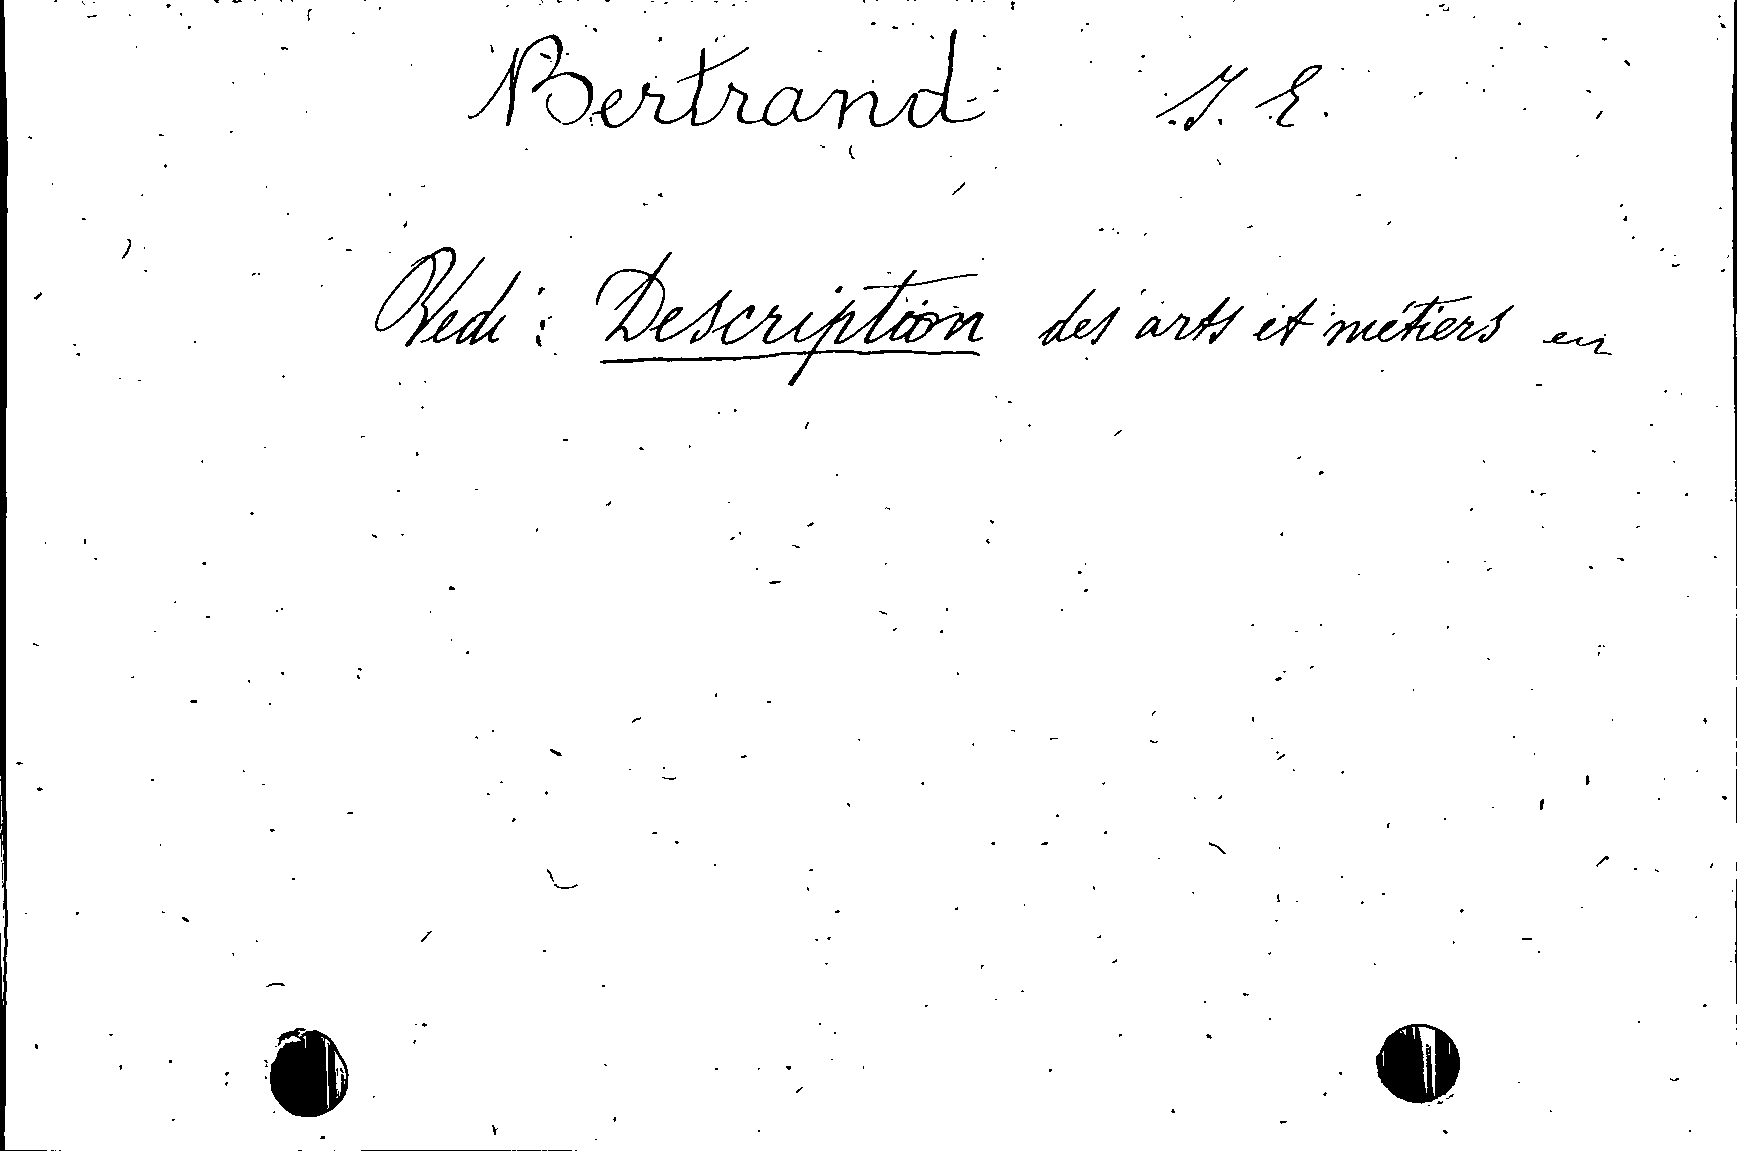 Bertrand J. E.
Vedi: Description des arts et métiers en